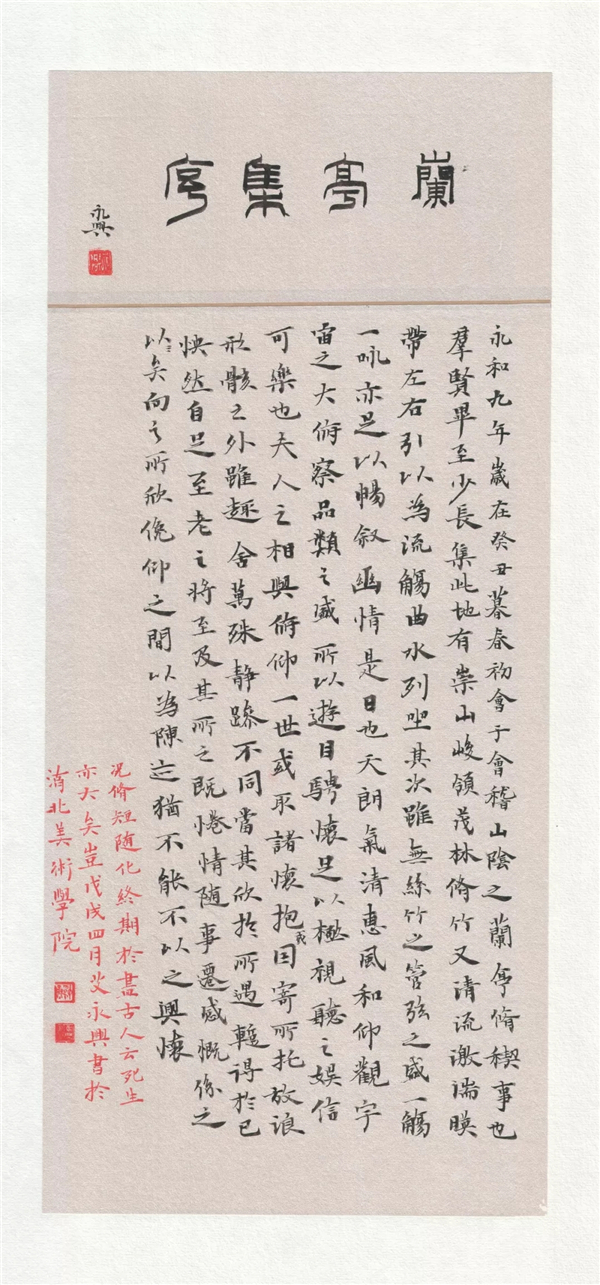 蘭亭集序
永興
永和九年歲在癸丑暮春初會于會稽山陰之蘭亭脩稧事也
羣賢畢至少長集此地有崇山峻領茂林脩竹又清流激湍暎
帶左右引以為流觴曲水列坐其次雖無絲竹之管弦之盛一觴
一詠亦足以暢敘幽情是日也天朗氣清惠風和仰觀宇
宙之大俯察品類之盛所以遊目騁懷足以極視聽之娛信
可樂也夫人之相與俯仰一世或取諸懷抱或因寄所托放浪
形骸之外雖趣舍萬殊静躁不同當其欣於所遇蹔得於己
怏然自足至老之將至及其所之既惓情随事遷感慨係之
以矣向之所欣俛仰之間以為陳迹猶不能不以之興懷
況脩短随化終期於盡古人云死生
亦大矣豈戊戌四月艾永興書於
北美術學院